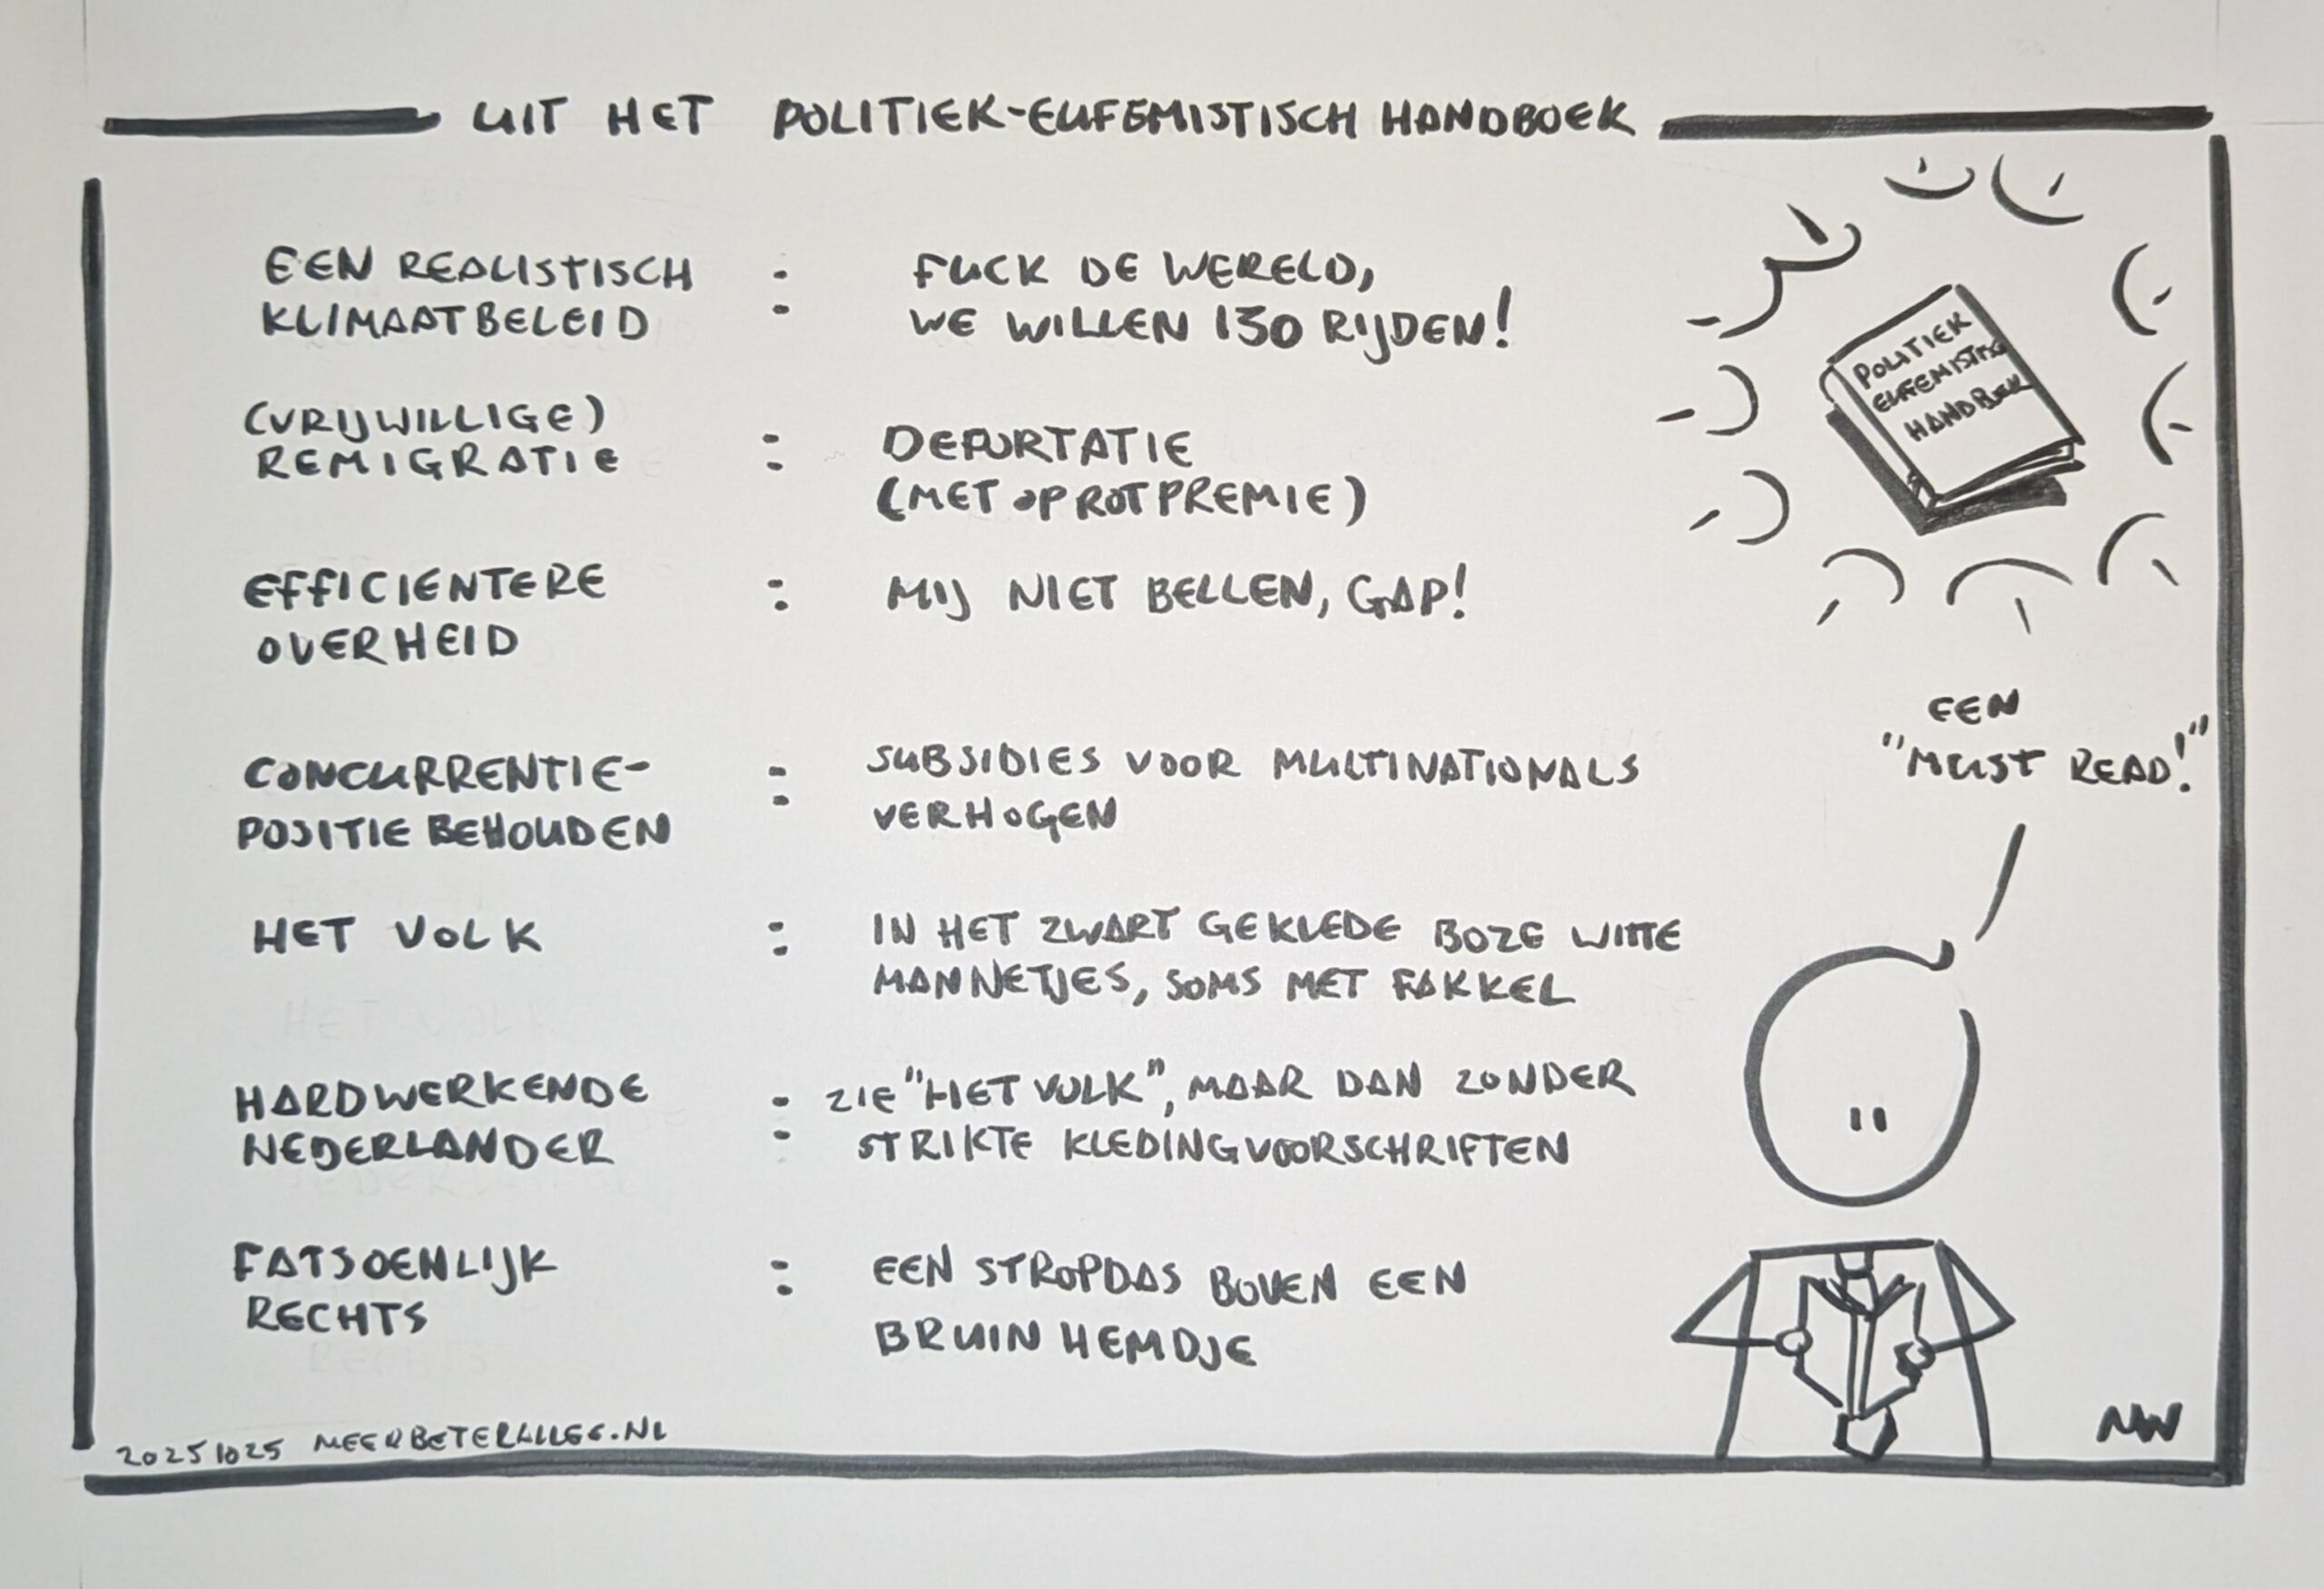 UIT HET POLITIEK-EUFEMISTISCH HANDBOEK
EEN REALISTISCH
KLIMAATBELEID
:
FUCK DE WERELD,
WE WILLEN 130 RIJDEN!
(VRIJWILLIGE)
REMIGRATIE
:
DEPORTATIE
(MET OPROTPREMIE)
EFFICIENTERE
OVERHEID
:
MIJ NIET BELLEN, GAP!
CONCURRENTIE-
POSITIE BEHOUDEN
:
SUBSIDIES VOOR MULTINATIONALS
VERHOGEN
HET VOLK
:
IN HET ZWART GEKLEDE BOZE WITTE
MANNETJES, SOMS MET FAKKEL
HARDWERKENDE
NEDERLANDER
:
ZIE "HET VOLK", MAAR DAN ZONDER
STRIKTE KLEDINGVOORSCHRIFTEN
FATSOENLIJK
RECHTS
:
EEN STROPDAS BOVEN EEN
BRUIN HEMDJE
POLITIEK
EUFEMISTISCH
HANDBOEK
EEN
"MUST READ!"
20251025 MEERBETERALLES.NL
MW